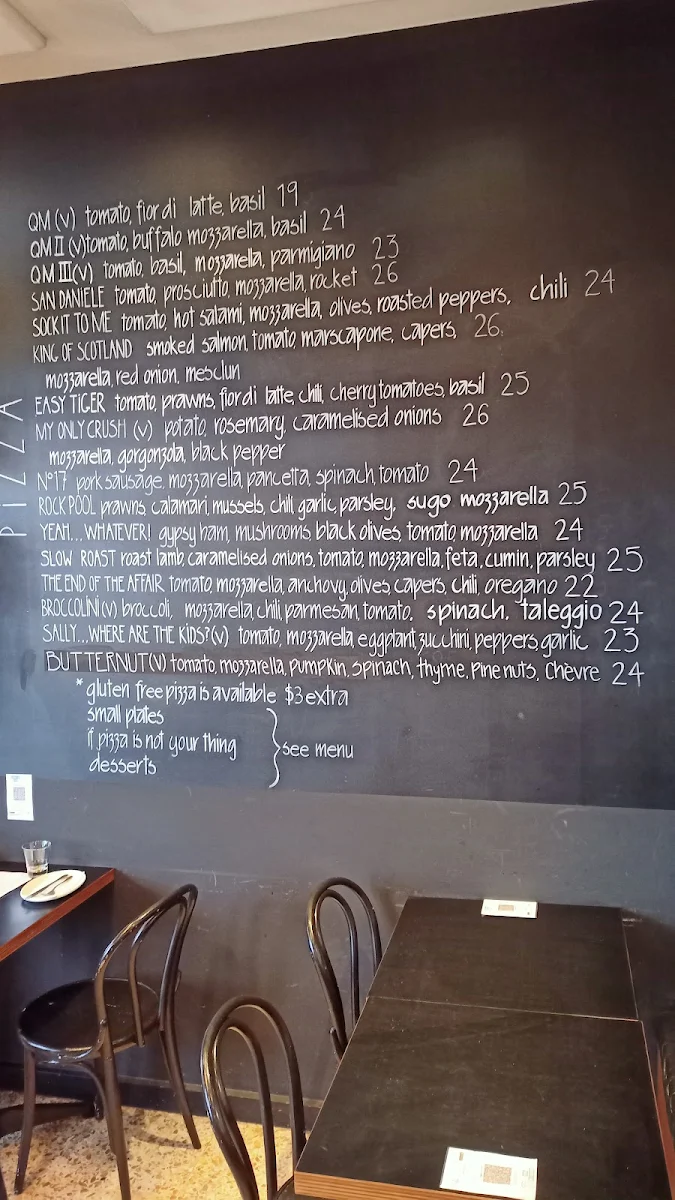 PIZZA
QM (v) tomato, fior di latte, basil 19
QM II (v) tomato, buffalo mozzarella, basil 24
QM III (v) tomato, basil, mozzarella, parmigiano 23
SAN DANIELE tomato, prosciutto, mozzarella, rocket 26
SOCK IT TO ME tomato, hot salami, mozzarella, olives, roasted peppers, chili 24
KING OF SCOTLAND smoked salmon, tomato, marscapone, capers, 26
mozzarella, red onion, mesclun
EASY TIGER tomato, prawns, fior di latte, chili, cherry tomatoes, basil 25
MY ONLY CRUSH (v) potato, rosemary, caramelised onions 26
mozzarella, gorgonzola, black pepper
Nº17 pork sausage, mozzarella, pancetta, spinach, tomato 24
ROCKPOOL prawns, calamari, mussels, chili, garlic, parsley, sugo mozzarella 25
YEAH...WHATEVER! gypsy ham, mushrooms, black olives, tomato mozzarella 24
SLOW ROAST roast lamb, caramelised onions, tomato, mozzarella, feta, cumin, parsley 25
THE END OF THE AFFAIR tomato, mozzarella, anchovy, olives, capers, chili, oregano 22
BROCCOLINI (v) broccoli, mozzarella, chili, parmesan, tomato, spinach, taleggio 24
SALLY...WHERE ARE THE KIDS? (v) tomato, mozzarella, eggplant, zucchini, peppers, garlic 23
BUTTERNUT (V) tomato, mozzarella, pumpkin, spinach, thyme, pine nuts, chèvre 24
* gluten free pizza is available $3 extra
small plates
if pizza is not your thing
desserts
see menu